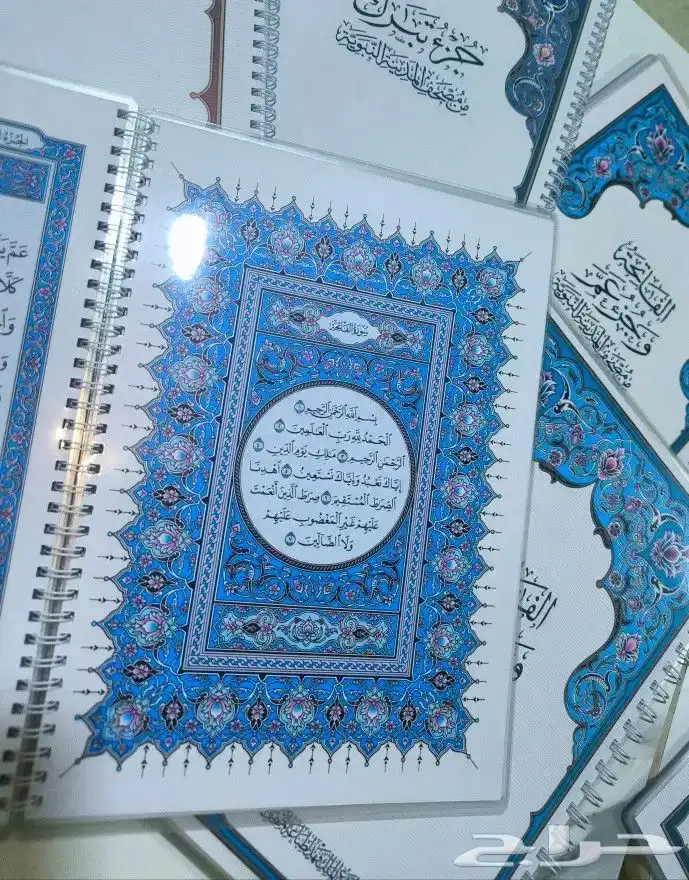 جزء تبارك
من مصحف المدينة النبوية
الفاتحة
وجزء عم
من مصحف المدينة النبوية
سورة الفاتحة
بِسْمِ اللَّهِ الرَّحْمَٰنِ الرَّحِيمِ ١
الْحَمْدُ لِلَّهِ رَبِّ الْعَالَمِينَ ٢
الرَّحْمَٰنِ الرَّحِيمِ ٣ مَالِكِ يَوْمِ الدِّينِ ٤
إِيَّاكَ نَعْبُدُ وَإِيَّاكَ نَسْتَعِينُ ٥ اهْدِنَا
الصِّرَاطَ الْمُسْتَقِيمَ ٦ صِرَاطَ الَّذِينَ أَنْعَمْتَ
عَلَيْهِمْ غَيْرِ الْمَغْضُوبِ عَلَيْهِمْ
وَلَا الضَّالِّينَ ٧
عَمَّ
كَلَّا
حراج